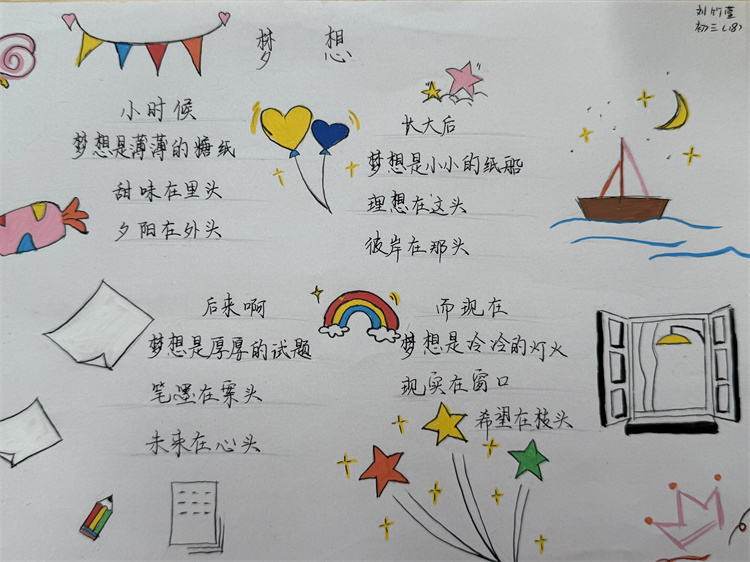 刘竹萱
初三(18)
梦想
小时候
梦想是薄薄的糖纸
甜味在里头
夕阳在外头
长大后
梦想是小小的纸船
理想在这头
彼岸在那头
后来啊
梦想是厚厚的试题
笔墨在案头
未来在心头
而现在
梦想是冷冷的灯火
现实在窗口
希望在枝头